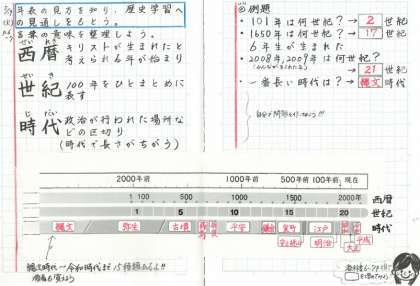 年表の見方を知り、歴史学習へ
の見通しをもとう。
言葉の意味を整理しよう。
せいれき
西暦 キリストが生まれたと
考えられる年が始まり
せいき
世紀 100年をひとまとめに
表す
じだい
時代 政治が行われた場所な
どの区切り
(時代で長さがちがう)
◎例題
・101年は何世紀？→2世紀
・1650年は何世紀？→17世紀
6年生が生まれた
・2008年,2009年は何世紀？
(みんなが生まれた年)
→21世紀
・一番長い時代は？→縄文時代
2000年前 1000年前 500年前 100年前 現在
1 100 500 1000 1500 2000 西暦
1 5 10 15 20 世紀
縄文 弥生 古墳 平安 鎌倉 室町 江戸 時代
安土桃山 明治 大正 平成
縄文時代～令和時代まで15種類あるよ!!